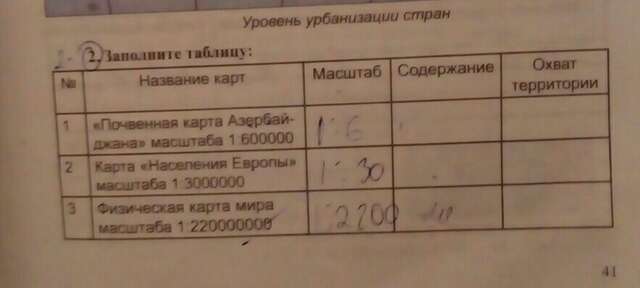 Уровень урбанизации стран
2. Заполните таблицу:
№ Название карт Масштаб Содержание Охват территории
1 «Почвенная карта Азербай-
джана» масштаба 1:600000 1:6
2 Карта «Населения Европы»
масштаба 1:3000000 1:30
3 Физическая карта мира
масштаба 1:220000000 1:2200
41